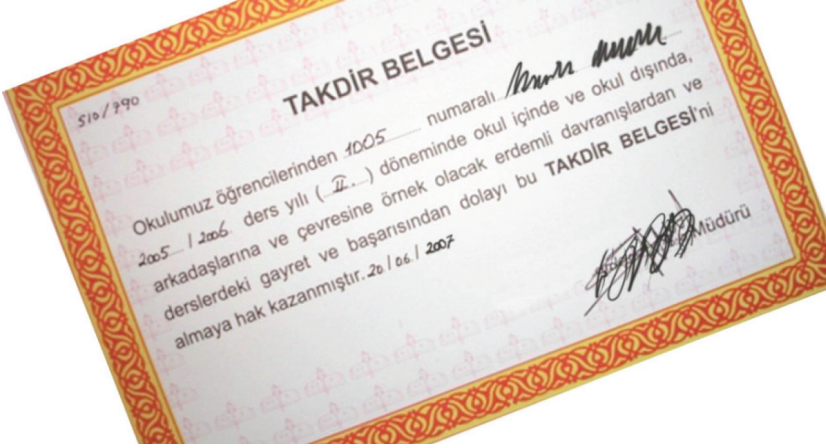 510/790
TAKDİR BELGESİ
Okulumuz öğrencilerinden 1005 numaralı
2005 / 2006 ders yılı ( II. ) döneminde okul içinde ve okul dışında,
arkadaşlarına ve çevresine örnek olacak erdemli davranışlardan ve
derslerdeki gayret ve başarısından dolayı bu TAKDİR BELGESİ'ni
almaya hak kazanmıştır. 20/06/2007
Müdürü